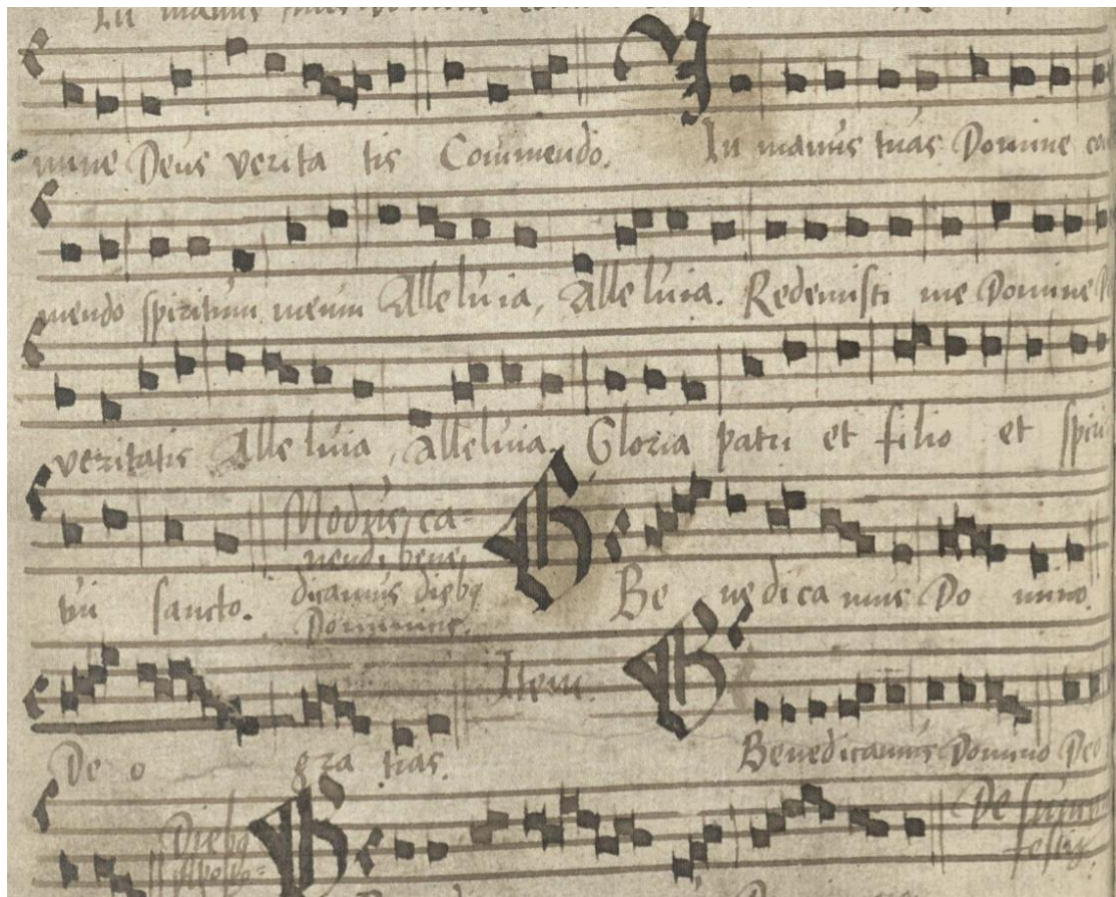 In manus tuas Domine
mine Deus verita tis Commendo. In manus tuas Domine co
mendo spiritum meum Alleluia, Alleluia. Redemisti me Domine
veritatis Alleluia, Alleluia. Gloria patri et filio et spiri
tui sancto. Modus ca=
nendi bene
dicamus diebq
Dominicis.
Be nedica mus Do mino.
Item.
De o gra tias. Benedicamus Domino Deo
Diebq
De sum̄
festis.